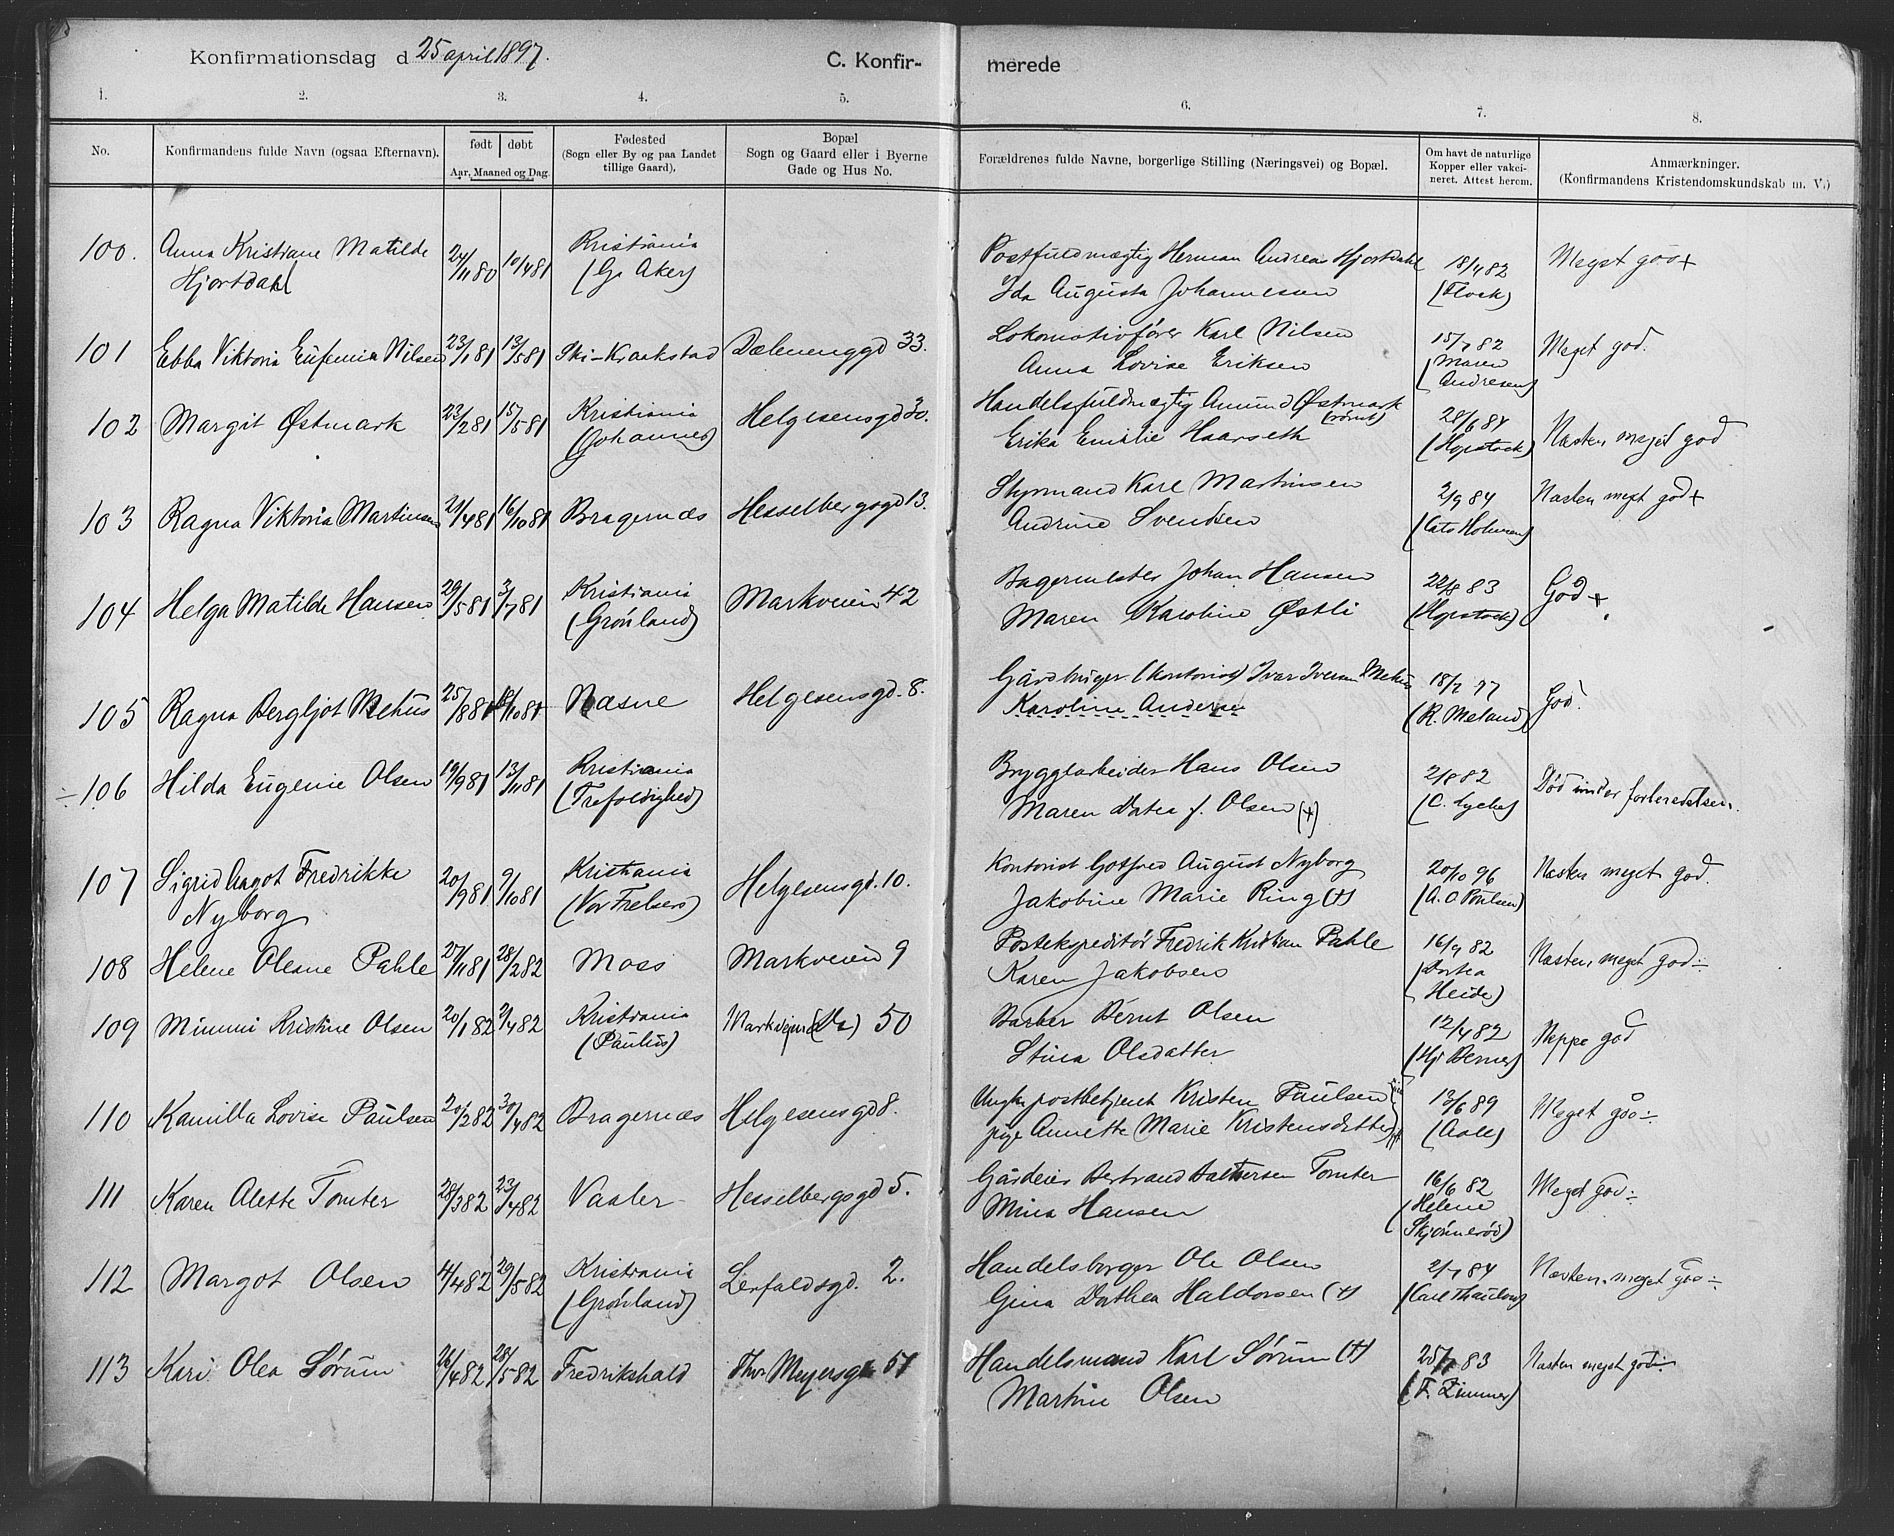 Konfirmationsdag d 25 april 1897. C. Konfir- merede
1. 2. 3. 4. 5. 6. 7. 8.
No. Konfirmandens fulde Navn (ogsaa Efternavn). født døbt Aar, Maaned og Dag. Fødested (Sogn eller By og paa Landet tillige Gaard). Bopæl Sogn og Gaard eller i Byerne Gade og Hus No. Forældrenes fulde Navne, borgerlige Stilling (Næringsvei) og Bopæl. Om havt de naturlige Kopper eller vakcineret. Attest herom. Anmærkninger. (Konfirmandens Kristendomskundskab m. V.)
100. Anna Kristiane Matilde 24/11 80 10/4 81 Kristiania Postfuldmægtig Herman Andreas Hjortdahl 18/4 82 Meget god +
Hjortdahl (Gr Aker) Ida Augusta Johannesen (Flock)
101 Ebba Viktoria Eufemia Nilsen 23/1 81 13/5 81 Ski-Kraakstad Dælenenggd 33. Lokomotivfører Karl Nilsen 15/7 82 Meget god.
Anna Lovise Eriksen (Maren Andresen)
102 Margit Østmark 23/2 81 15/5 81 Kristiania Helgesensgd 30. Handelsfuldmægtig Amund Østmark 28/6 84 Næsten meget god
(Johannes) Erika Emilie Haarseth (Hopstock)
103 Ragna Viktoria Martinsen 21/4 81 16/10 81 Bragernæs Hesselbergsgd 13. Styrmand Karl Martinsen 2/9 84 Næsten meget god +
Andrine Svendsen (Cato Holmsen)
104 Helga Matilde Hansen 29/5 81 3/7 81 Kristiania Markveien 42 Bagermester Johan Hansen 22/8 83 God +
(Grønland) Maren Karoline Østli (Hopstock)
105 Ragna Bergljot Mehus 25/8 81 /10 81 Næsne Helgesensgd. 8. Gårdbruger (kontorist) Ivar Iversen Mehus 18/2 97 God.
Karoline Andersen (R. Meland)
÷ 106 Hilda Eugenie Olsen 19/9 81 13/11 81 Kristiania Bryggearbeider Hans Olsen 2/8 82 Død under forberedelsen.
(Trefoldighed) Maren Dotea f. Olsen (+)
107 Sigrid Aagot Fredrikke 20/9 81 9/10 81 Kristiania Helgesensgd. 10. Kontorist Gotfred August Nyborg 20/10 96 Næsten meget god.
Nyborg (Vor Frelsers) Jakobine Marie Ring (+) (A. O. Poulsen)
108 Helene Olesne Pahle 27/11 81 28/2 82 Moss Markveien 9 Postekspeditør Fredrik Kristian Pahle 16/9 82 Næsten meget god ÷
Karen Jakobsen (Dortea Heide)
109 Mimmi Kristine Olsen 20/1 82 2/4 82 Kristiania Markveien 50 Barber Bernt Olsen 12/4 82 Neppe god
(Paulus) Stina Olsdatter (Hj. Berner)
110 Kamilla Lovise Paulsen 20/2 82 30/4 82 Bragernæs Helgesensgd 8. Ungk. postbetjent Kristen Paulsen 13/6 89 Meget god ÷
pige Annette Marie Kristensdatter
111 Karen Alette Tomter 28/3 82 23/4 82 Vaaler Hesselbergsgd 5. Gårdeier Bertrand Baltsersen Tomter 16/6 82 Meget god ÷
Mina Hansen (Helene Skjønnerød)
112 Margot Olsen 4/4 82 29/5 82 Kristiania Lenfaldsgd. 2. Handelsborger Ole Olsen 2/7 84 Næsten meget god ÷
(Grønland) Gina Dorthea Haldorsen (+) (Carl Thaulow)
113 Kari Olea Sørum 26/4 82 28/5 82 Fredrikshald Thv. Meyersgd 51 Handelsmand Karl Sørum (+) 25/ 83 Næsten meget god ÷
Martine Olsen (F. Zimmer)